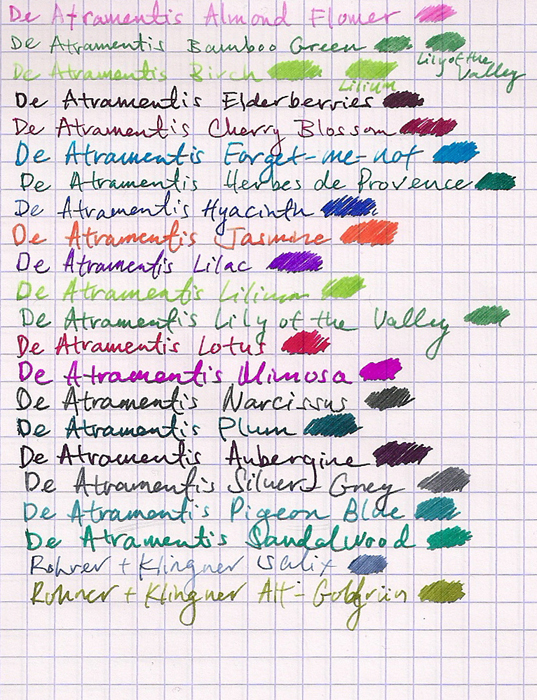 De Atramentis Almond Flower
De Atramentis Bamboo Green
Lily of the Valley
De Atramentis Birch
Lilium
De Atramentis Elderberries
De Atramentis Cherry Blossom
De Atramentis Forget-me-not
De Atramentis Herbes de Provence
De Atramentis Hyacinth
De Atramentis Jasmine
De Atramentis Lilac
De Atramentis Lilium
De Atramentis Lily of the Valley
De Atramentis Lotus
De Atramentis Mimosa
De Atramentis Narcissus
De Atramentis Plum
De Atramentis Aubergine
De Atramentis Silver Grey
De Atramentis Pigeon Blue
De Atramentis Sandalwood
Rohrer + Klingner Salix
Rohrer + Klingner Alt-Goldgrün